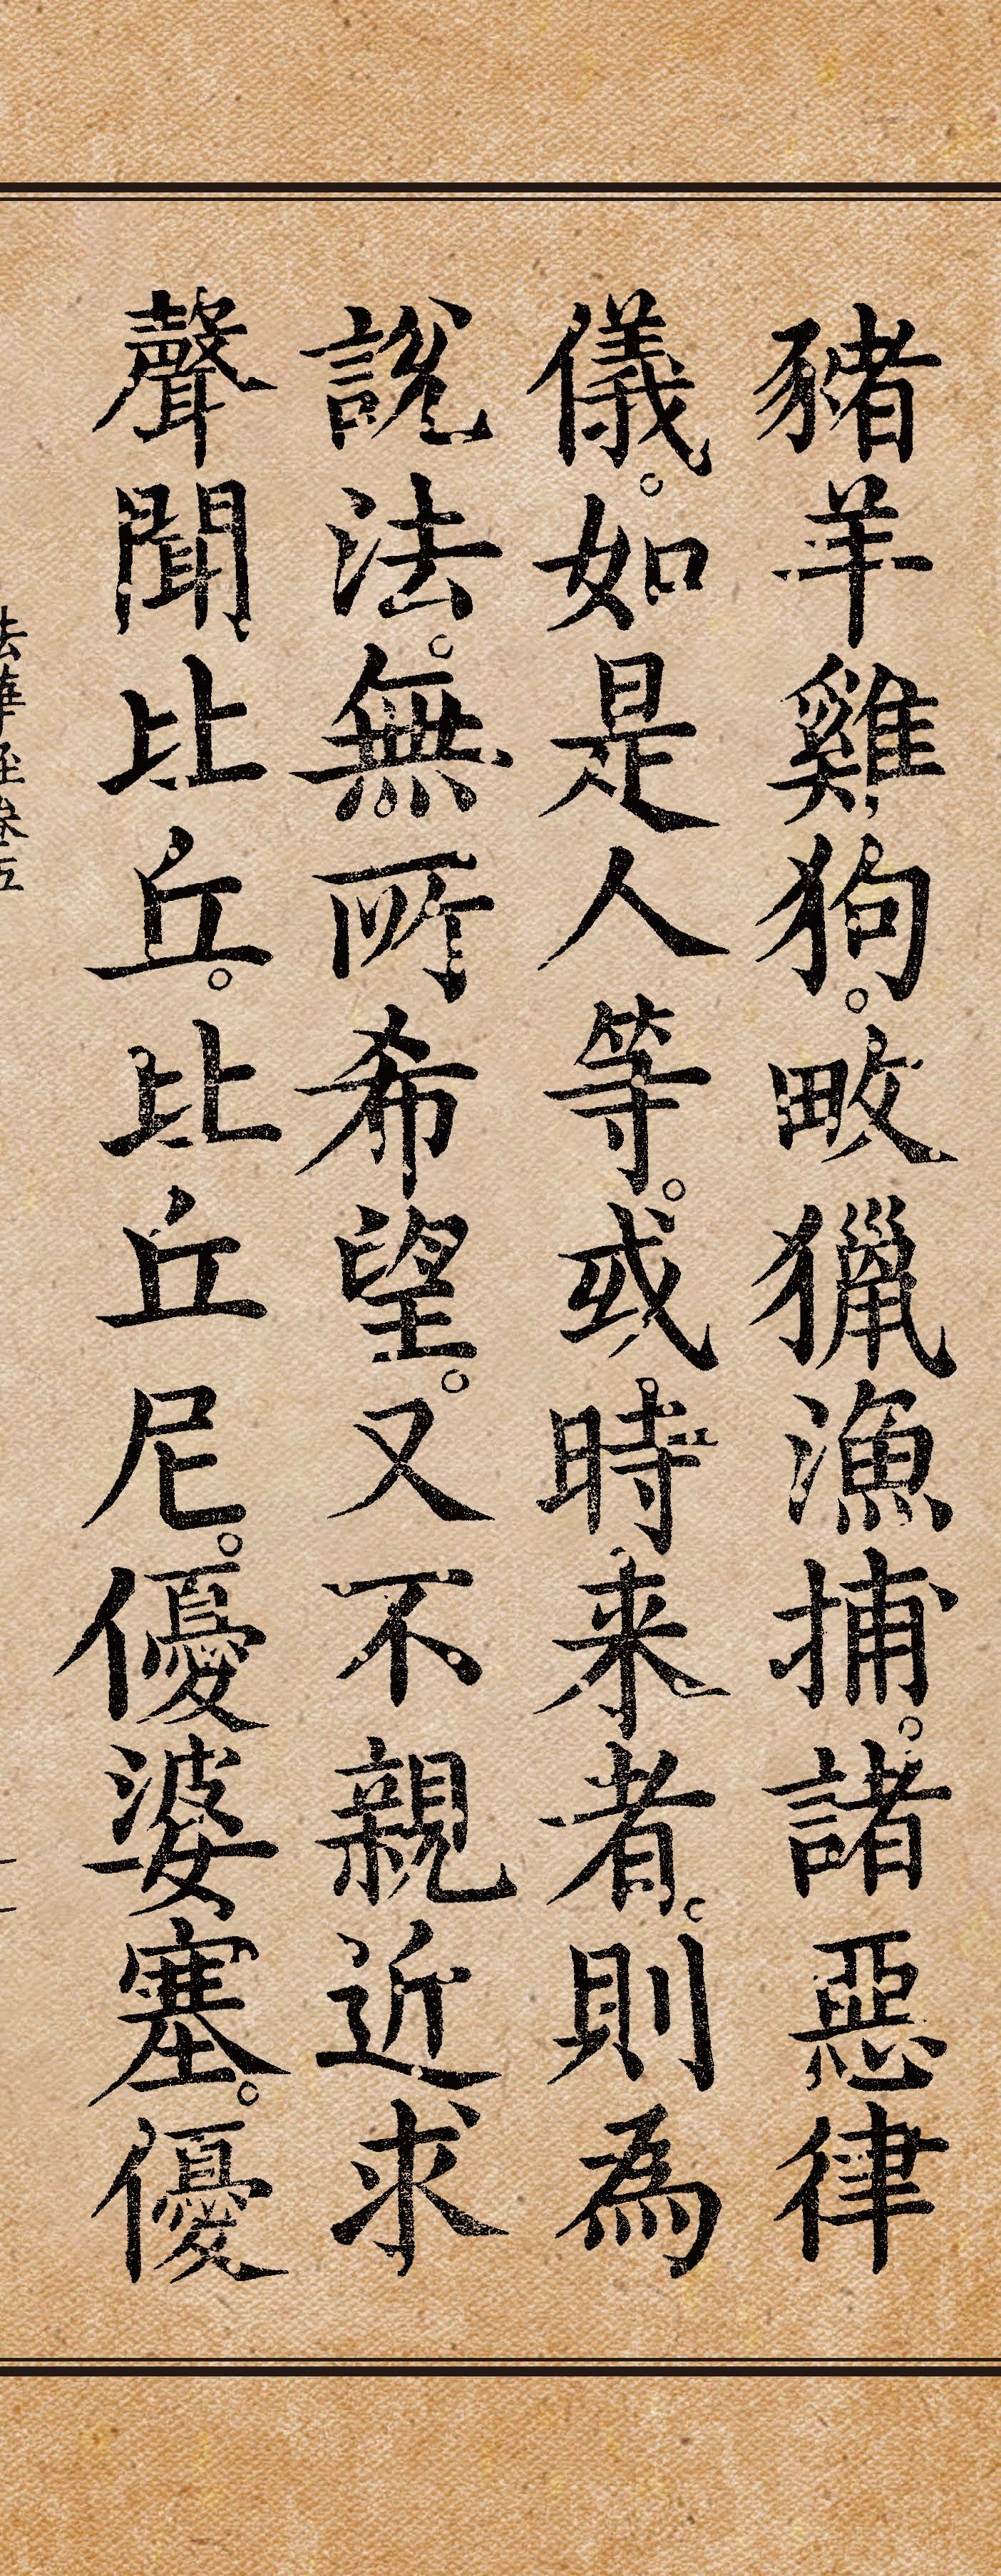 豬羊雞狗。畋獵漁捕。諸惡律
儀。如是人等。或時来者。則為
說法。無所希望。又不親近求
聲聞比丘。比丘尼。優婆塞。優
法華經卷五